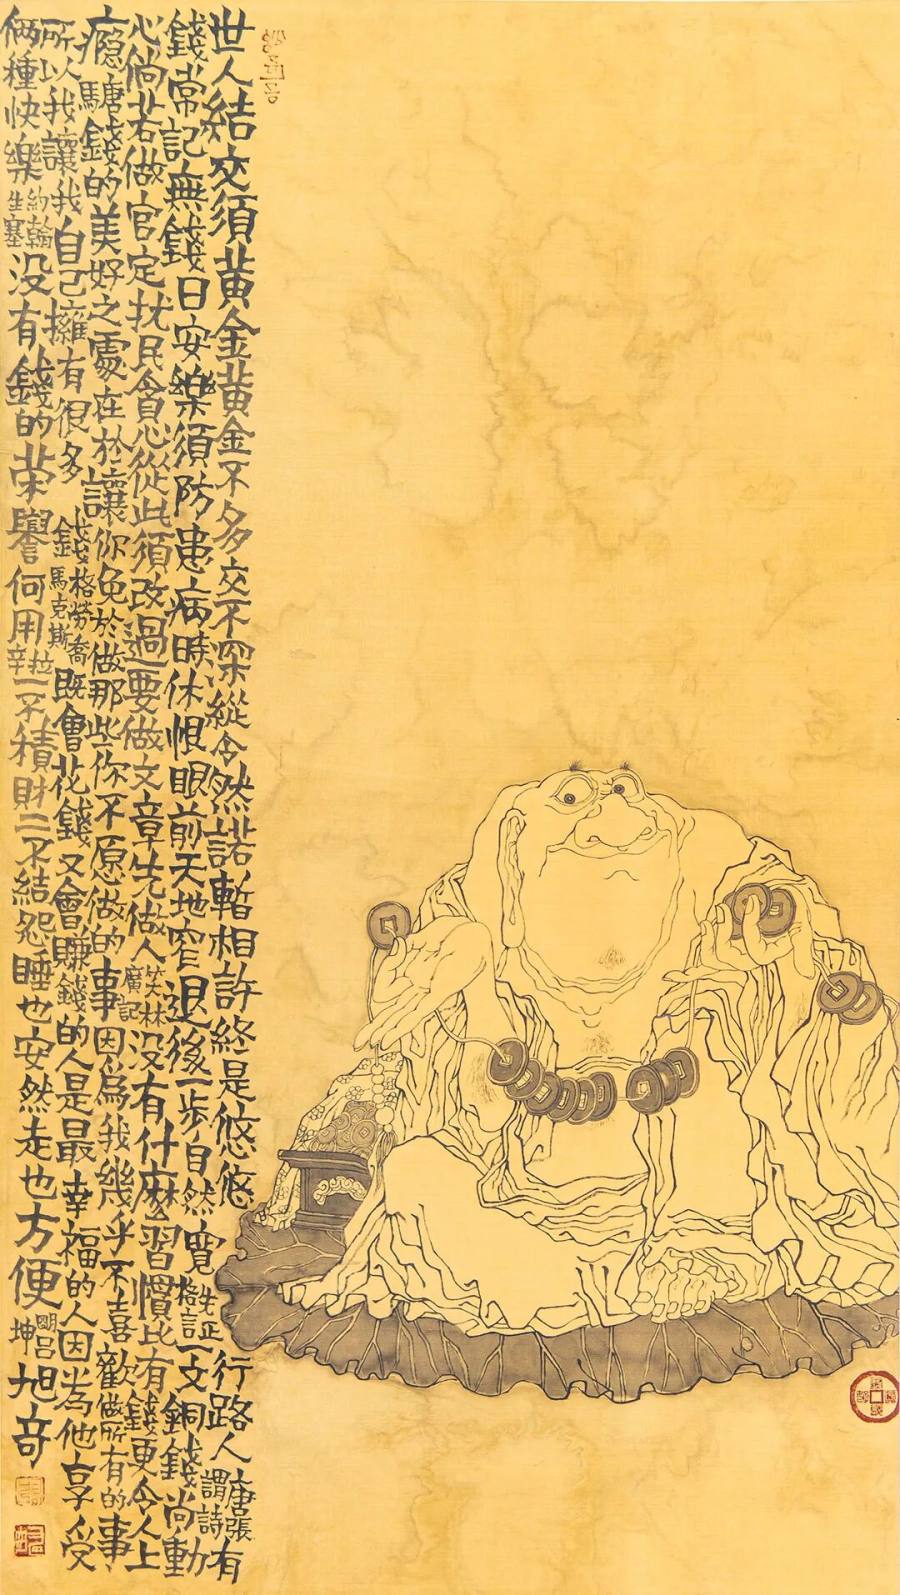 世人結交須黃金黃金不多交不深縱令然諾暫相許終是悠悠行路人唐張謂詩有
錢常記無錢日安樂須防患病時休恨眼前天地窄退後一步自然寬先正格言一文銅錢尚動
心倘若做官定扰民貪心從此須改過要做文章先做人笑林廣記没有什麽習慣比有錢更令人上
瘾錢的美好之處在於讓你免於做那些你不愿做的事因為我幾乎不喜歡做所有的事
所以我讓我自己擁有很多錢格勞喬馬克斯既會花錢又會賺錢的人是最幸福的人因为他享受
俩種快樂約翰生塞没有錢的荣譽何用拉辛一不積財二不結怨睡也安然走也方便明呂坤旭奇